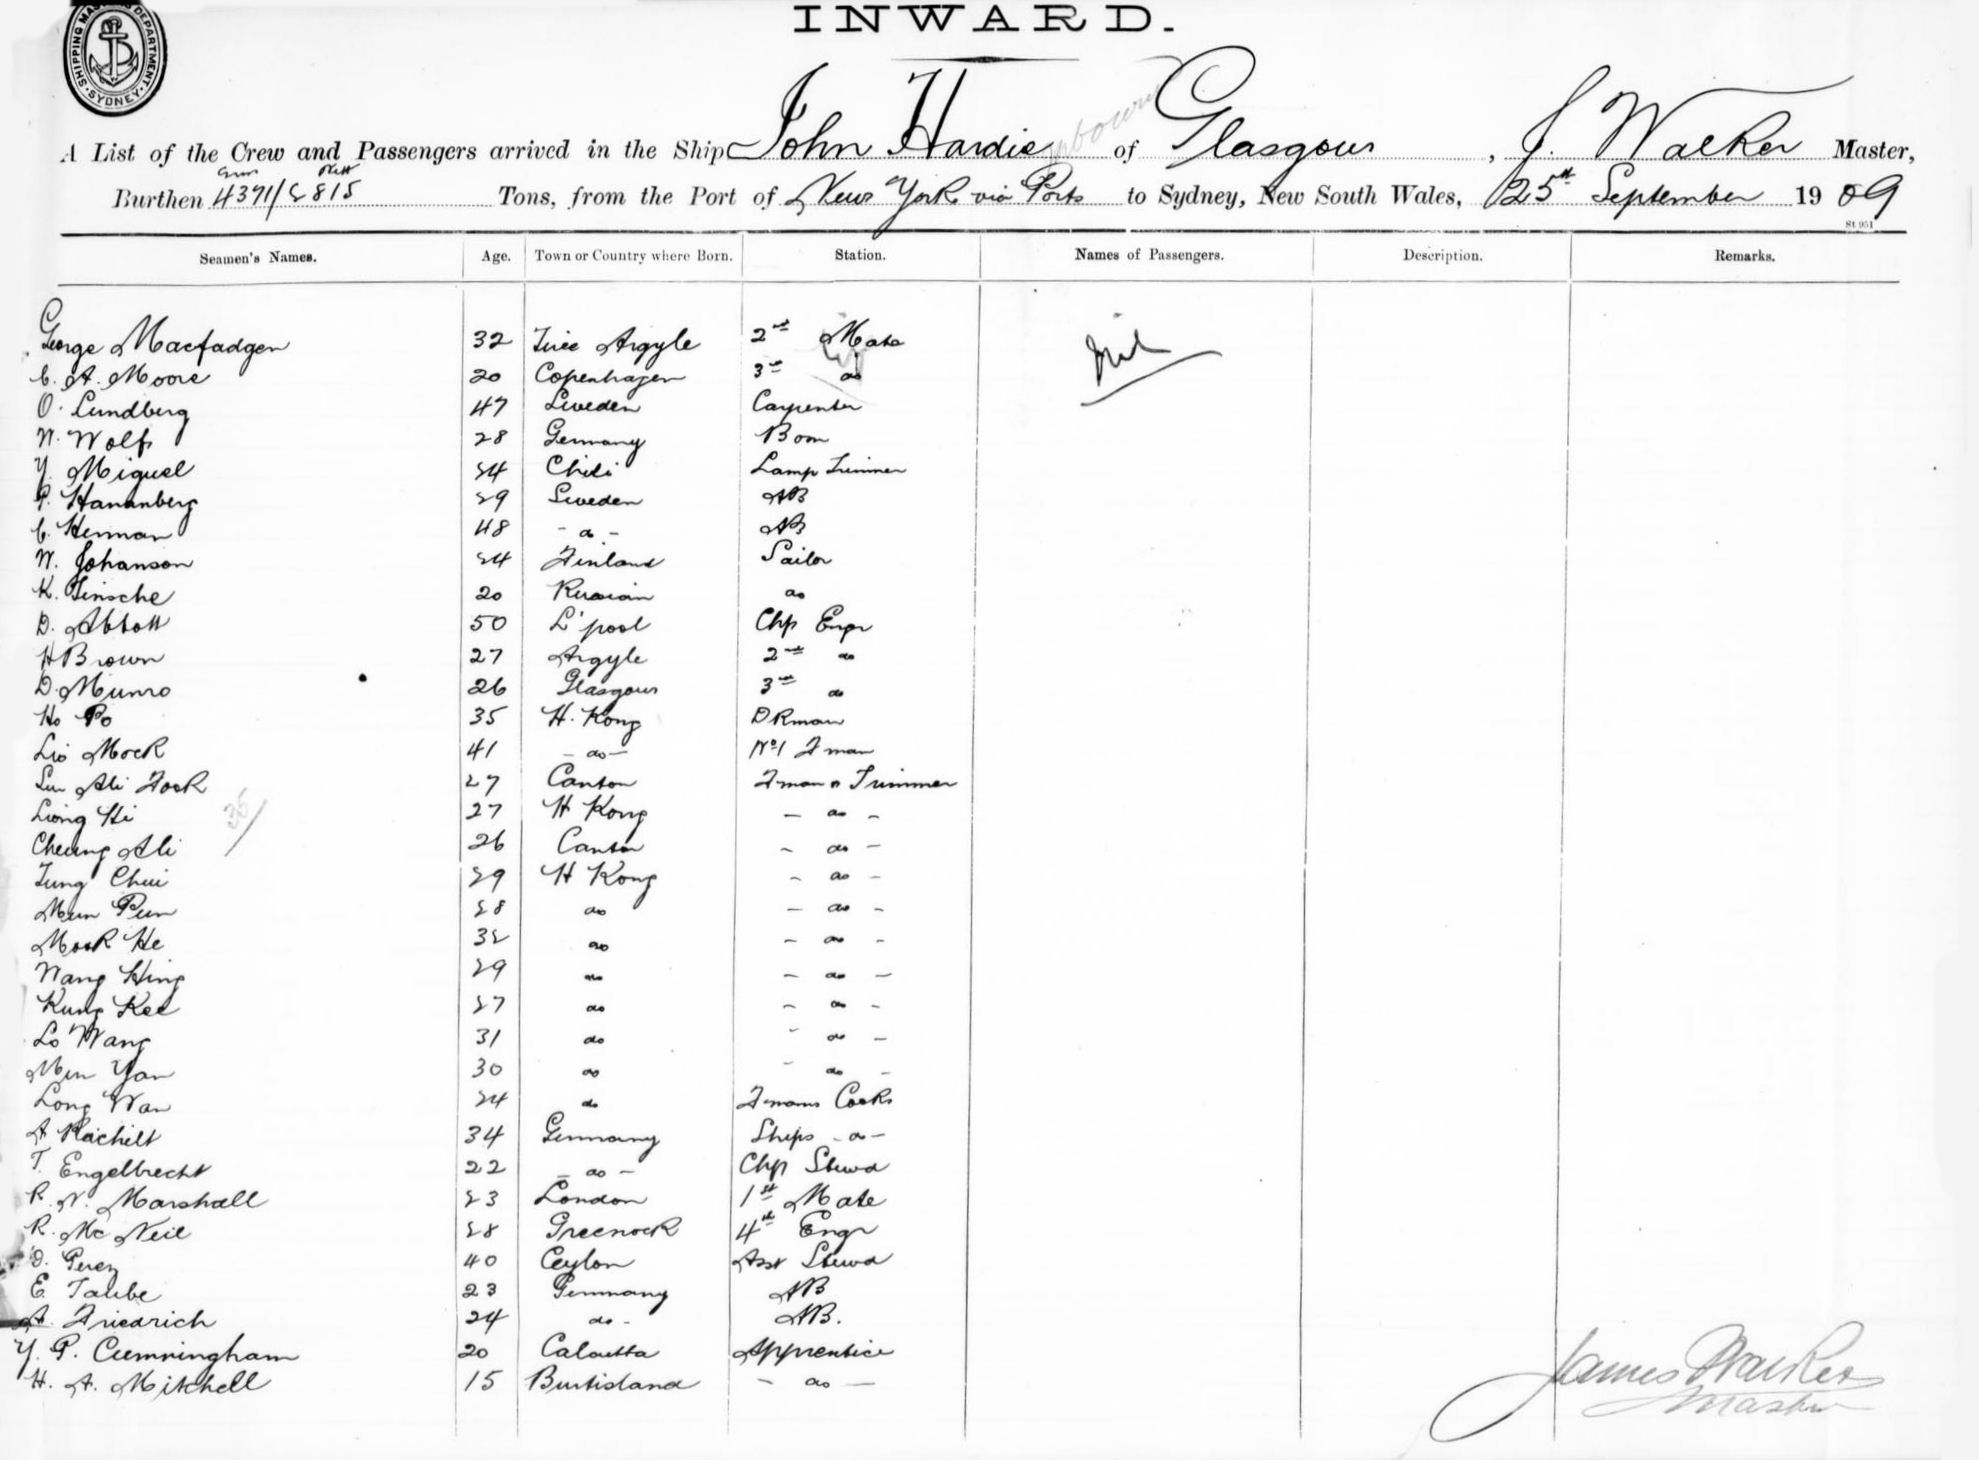 INWARD.
SHIPPING MASTERS DEPARTMENT SYDNEY
A List of the Crew and Passengers arrived in the Ship John Hardie of Glasgow, J. Walker Master,
Burthen 4371/2815 Tons, from the Port of New York via Ports to Sydney, New South Wales, 25th September 1909
St 951
Seamen's Names. Age. Town or Country where Born. Station. Names of Passengers. Description. Remarks.
George Macfadgen 32 Tiree Argyle 2nd Mate Nil
C. A. Moore 20 Copenhagen 3rd do
O. Lundberg 47 Sweden Carpenter
W. Wolf 28 Germany Bosn
Y. Miguel 24 Chili Lamp Trimmer
P. Hananberg 29 Sweden AB
C. Herman 48 - do - AB
W. Johanson 24 Finland Sailor
K. Ginsche 20 Russian do
D. Abbott 50 L'pool Chf Engr
H Brown 27 Argyle 2nd do
D. Munro 26 Glasgow 3rd do
Ho Po 35 H. Kong DKman
Lio Mock 41 - do - No 1 Fman
Lu Ah Fook 27 Canton Fman & Trimmer
Liong Hi 27 H Kong - do -
35/
Cheung Ah 26 Canton - do -
Tung Chui 29 H Kong - do -
Mun Pun 28 do - do -
Mook He 32 do - do -
Wang Hing 29 do - do -
Kung Kee 27 do - do -
Lo Wang 31 do - do -
Min Yan 30 do - do -
Long Wan 24 do Fmans Cook
A Rachilt 34 Germany Ships - do -
T. Engelbrecht 22 - do - Chf Stewd
R. N. Marshall 23 London 1st Mate
R. Mc Neil 28 Greenock 4th Engr
D. Perez 40 Ceylon Asst Stewd
E. Taube 23 Germany AB
A. Friedrich 24 do - AB.
Y. P. Cunningham 20 Calcutta Apprentice
H. A. Mitchell 15 Burtisland - do -
James Walker
Master